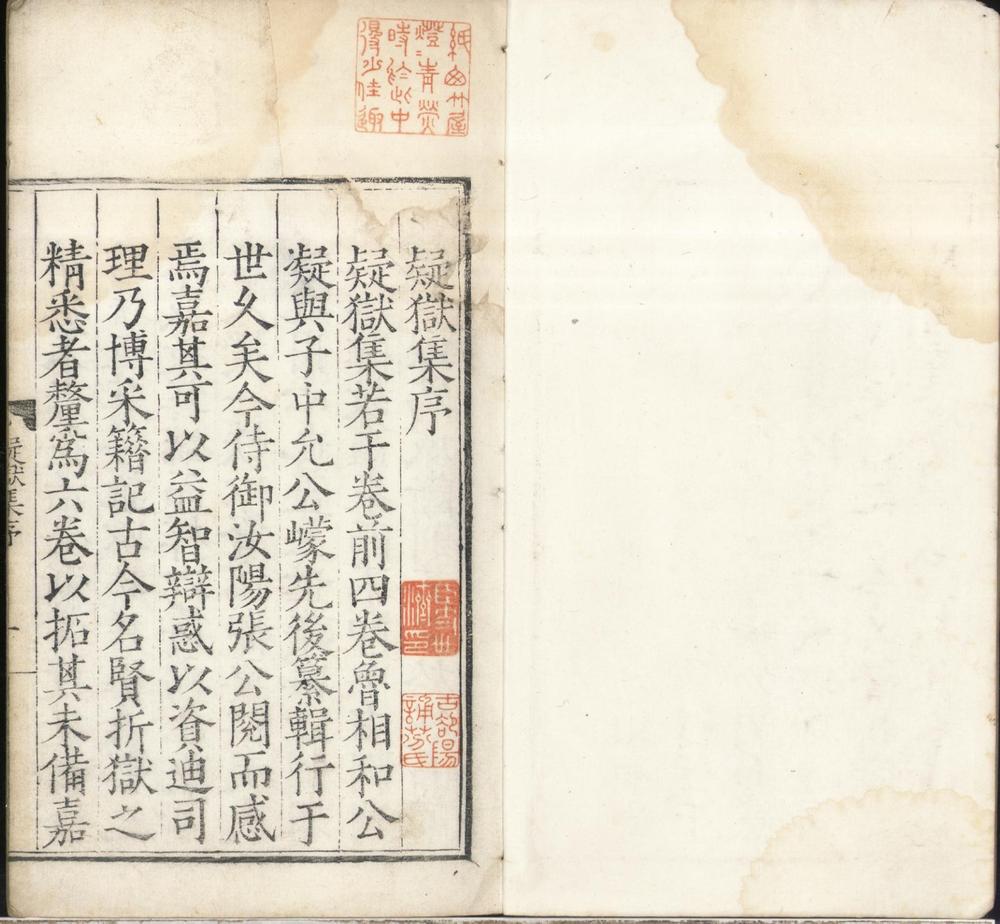 疑獄集序
疑獄集若干卷前四卷魯相和公
凝與子中允公㠓先後纂輯行于
世久矣今侍御汝陽張公閱而感
焉嘉其可以益智辯惑以資迪司
理乃博采籍記古今名賢折獄之
精悉者釐爲六卷以拓其未備嘉
疑獄集序
一
紙窗竹屋
燈=青熒
時於此中
得少佳趣